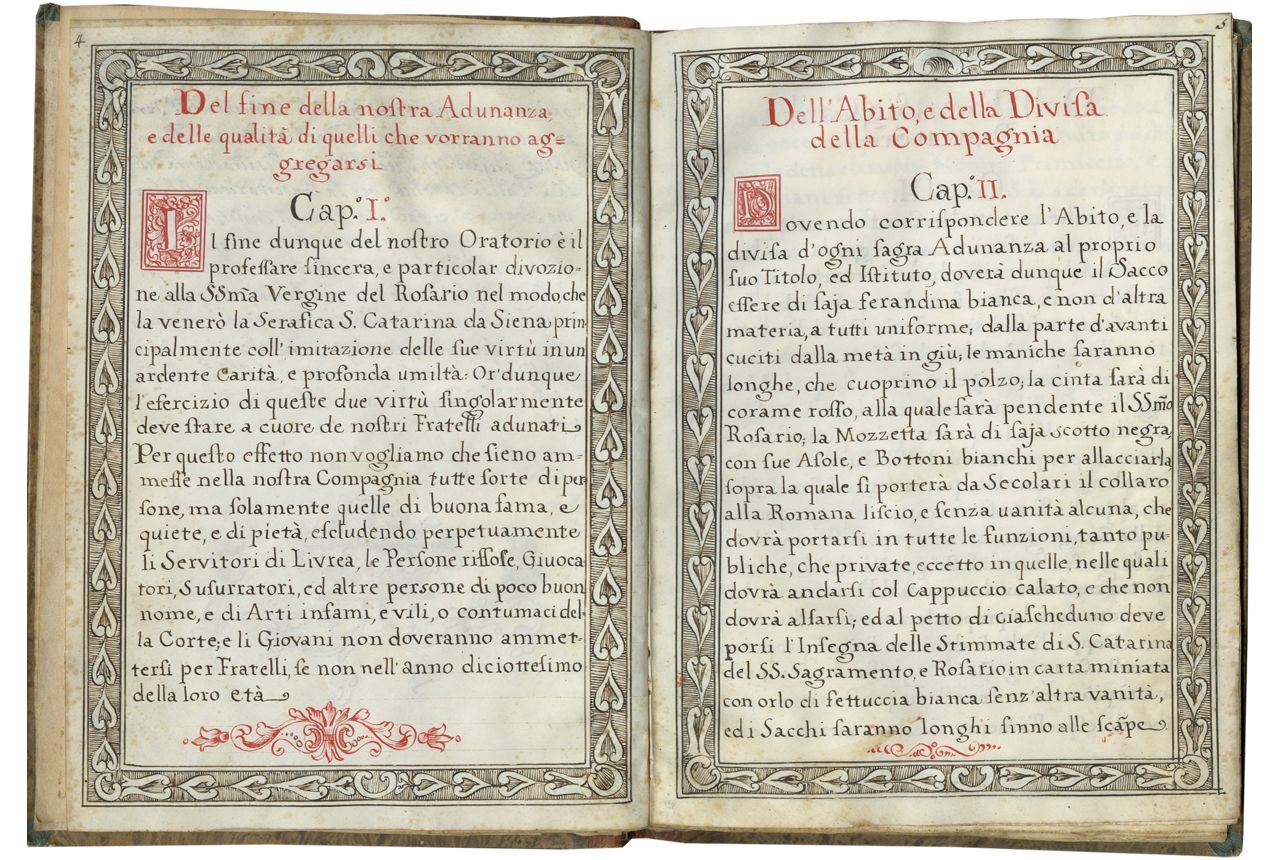 4.
Del fine della nostra Adunanza,
e delle qualità di quelli che vorranno ag=
gregarsi
Cap.º I.º
Il fine dunque del nostro Oratorio è il
professare sincera, e particolar divozio-
ne alla SSm̃a Vergine del Rosario nel modo, che
la venerò la Serafica S. Catarina da Siena prin
cipalmente coll' imitazione delle sue virtù in un
ardente Carità, e profonda umiltà: Or' dunque
l'esercizio di queste due virtù singolarmente
deve stare a cuore de nostri Fratelli adunati
Per questo effetto non vogliamo che sieno am=
messe nella nostra Compagnia tutte sorte di per
sone, ma solamente quelle di buona fama, e
quiete, e di pietà, escludendo perpetuamente
li Servitori di Livrea, le Persone rissose, Giuoca
tori, Susurratori, ed altre persone di poco buon
nome, e di Arti infami, e vili, o contumaci del-
la Corte; e li Giovani non doveranno ammet-
tersi per Fratelli, se non nell' anno diciottesimo
della loro età
5
Dell'Abito, e della Divisa
della Compagnia
Cap.º II.
Dovendo corrispondere l'Abito, e la
divisa d'ogni sagra Adunanza al proprio
suo Titolo, ed Istituto, doverà dunque il Sacco
essere di saja ferandina bianca, e non d'altra
materia, a tutti uniforme; dalla parte d'avanti
cuciti dalla metà in giù; le maniche saranno
longhe, che cuoprino il polzo; la cinta sarà di
corame rosso, alla quale sarà pendente il SSm̃o
Rosario; la Mozzetta sarà di saja scotto negra,
con sue Asole, e Bottoni bianchi per allacciarla
sopra la quale si porterà da Secolari il collaro
alla Romana liscio, e senza vanità alcuna, che
dovrà portarsi in tutte le funzioni, tanto pu-
bliche, che private, eccetto in quelle, nelle quali
dovrà andarsi col Cappuccio calato, e che non
dovrà alsarsi; ed al petto di ciascheduno deve
porsi l'Insegna delle Stimmate di S. Catarina
del SS. Sagramento, e Rosario in carta miniata
con orlo di fettuccia bianca senz'altra vanità,
ed i Sacchi saranno longhi sinno alle scar̃pe